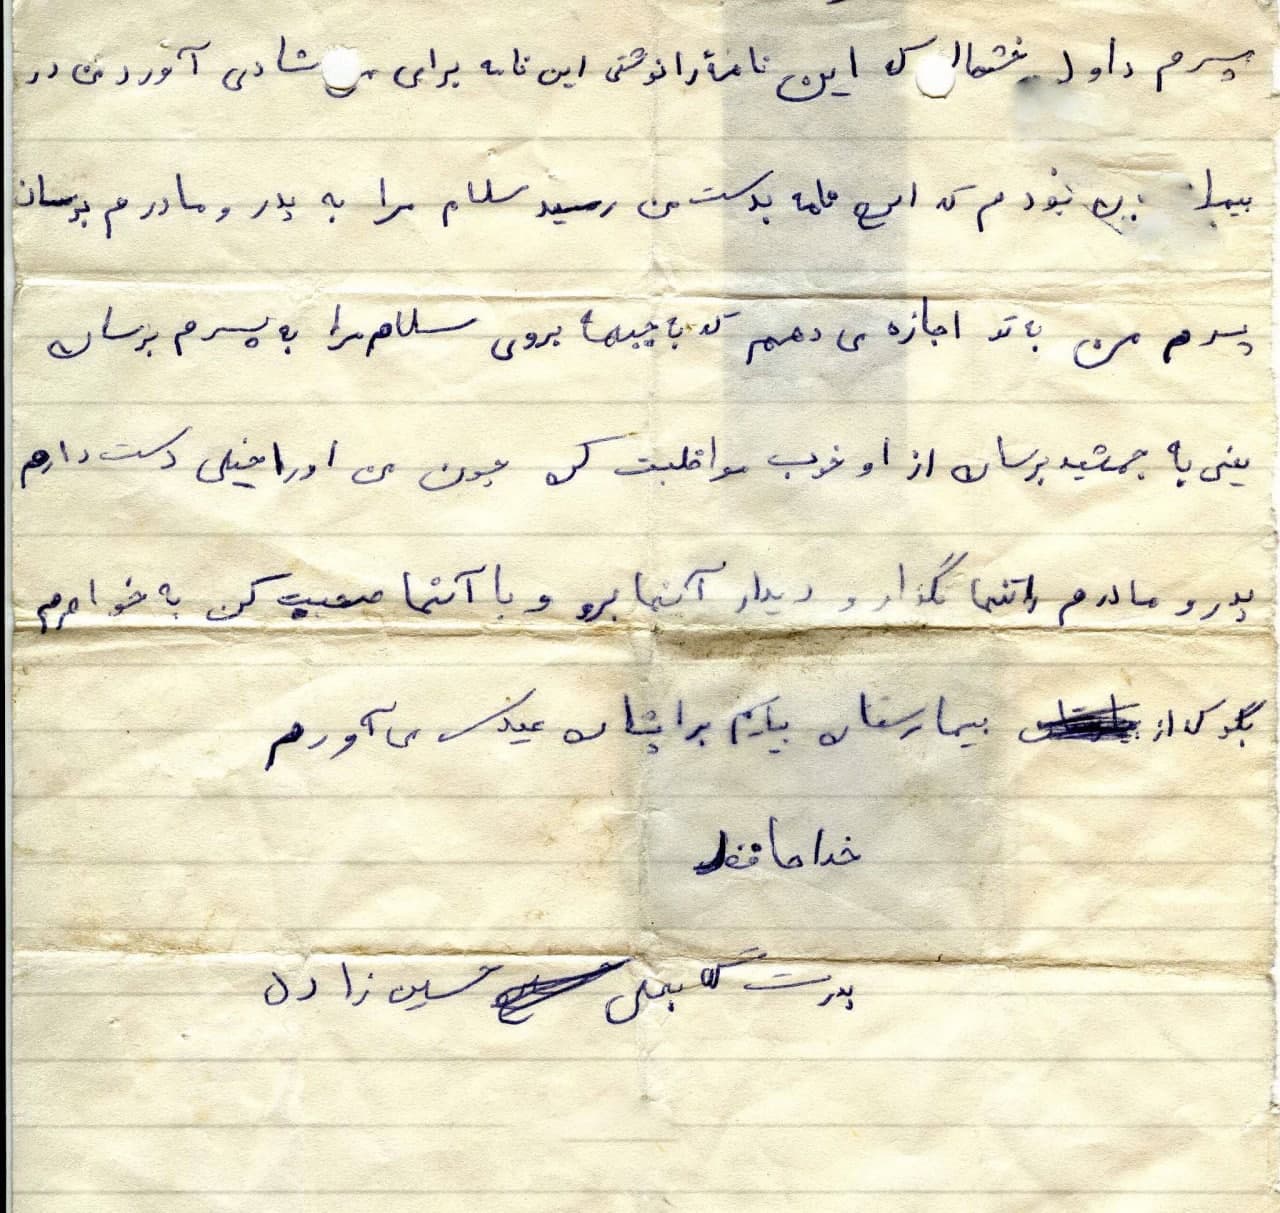 پسرم داود خشحال که این نامهٔ را نوشتی این نامه برای من شادی آورد من در
بودم که این نامه بدست من رسید سلام مرا به پدر و مادرم برسان
پسرم من به تو اجازه می دهم که به جبهه بروی سلام مرا به پسرم برسان
یعنی به جمشید برسان از او خوب مواظبت کن چون من او را خیلی دست دارم
پدر و مادرم را تنها نگذار و دیدار آنها برو و با آنها صحبت کن به خواهرم
بگو که از بیمارستان بیایم برایشان عینک می آورم
خداحافظ
پدرت حسین زاده